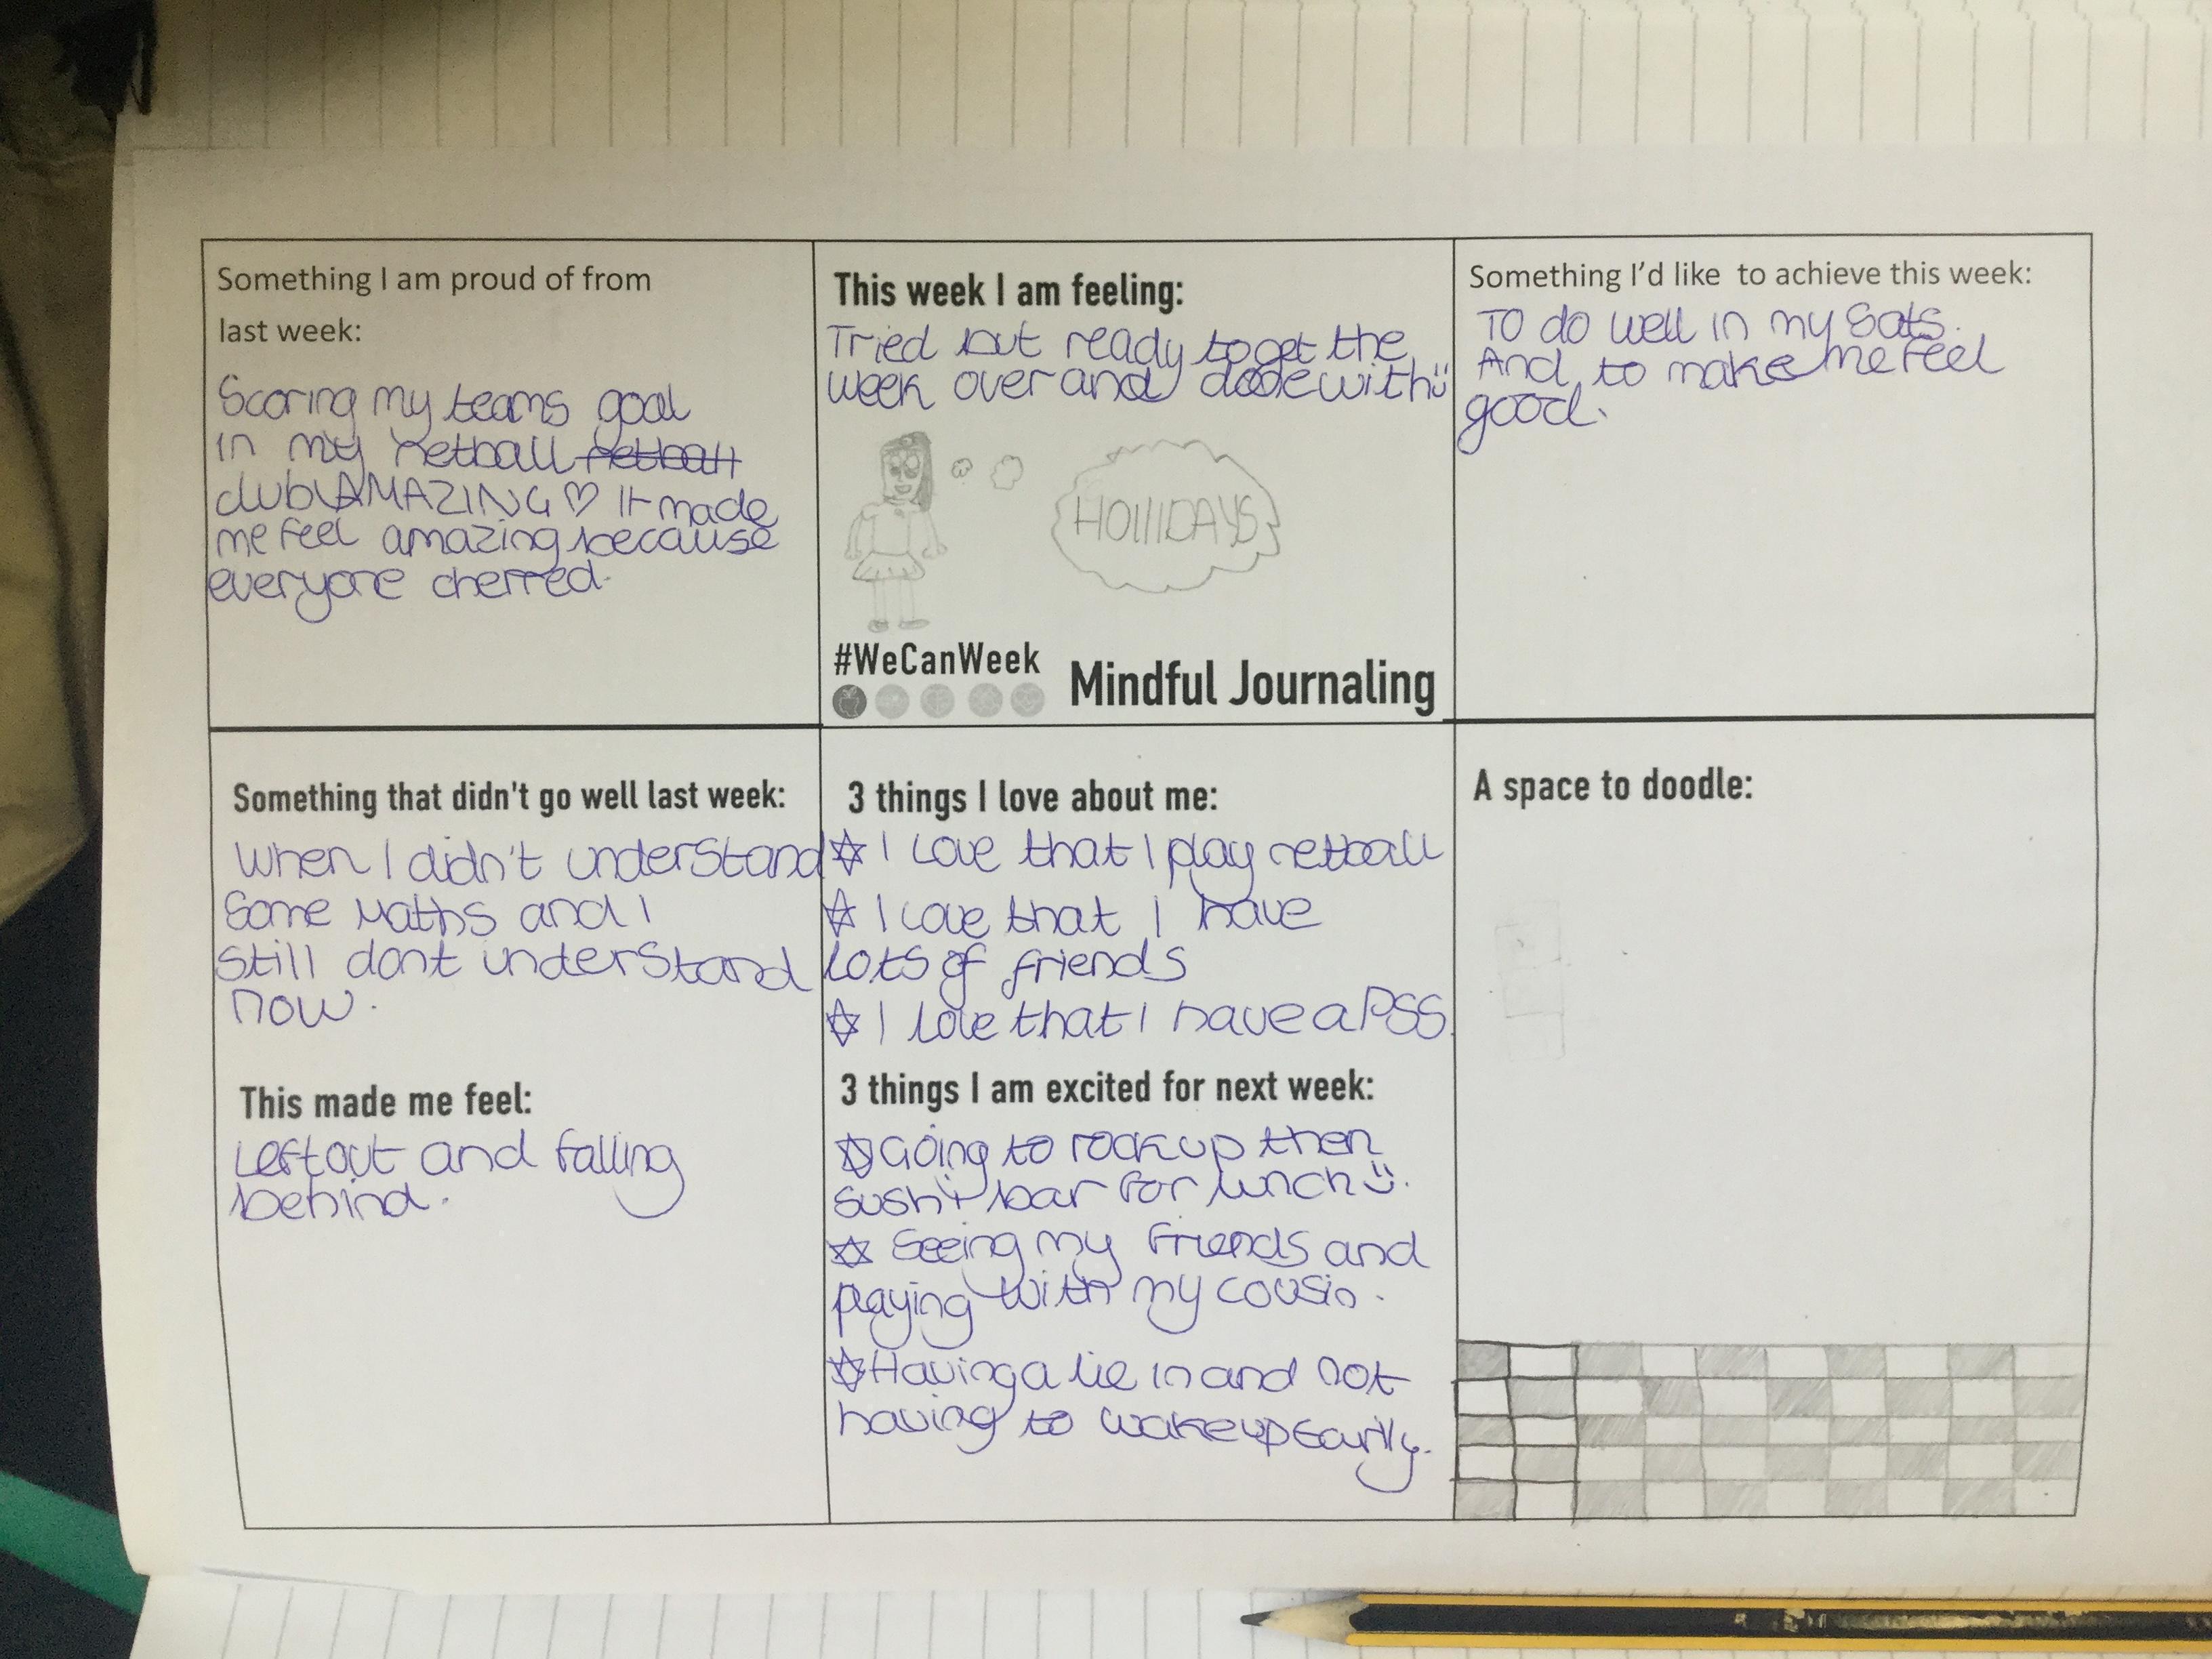 Something I am proud of from
last week:
Scoring my teams goal
in my netball netball
club AMAZING ♡ It made
me feel amazing because
everyone cherred.
This week I am feeling:
Tried but ready to get the
week over and done with
HOllIDAYS
#WeCanWeek
Mindful Journaling
Something I'd like to achieve this week:
To do well in my Sats.
And to make me feel
good.
Something that didn't go well last week:
When I didn't understand
Some Maths and I
Still dont understand
now.
This made me feel:
Left out and falling
behind.
3 things I love about me:
☆ I Love that I play netball
☆ I Love that I have
Lots of friends
☆ I love that I have a PSS.
3 things I am excited for next week:
☆ Going to rock up then
Sushi bar for lunch :).
☆ Seeing my friends and
playing with my cousin.
☆ Having a lie in and not
having to wake up Earily.
A space to doodle: